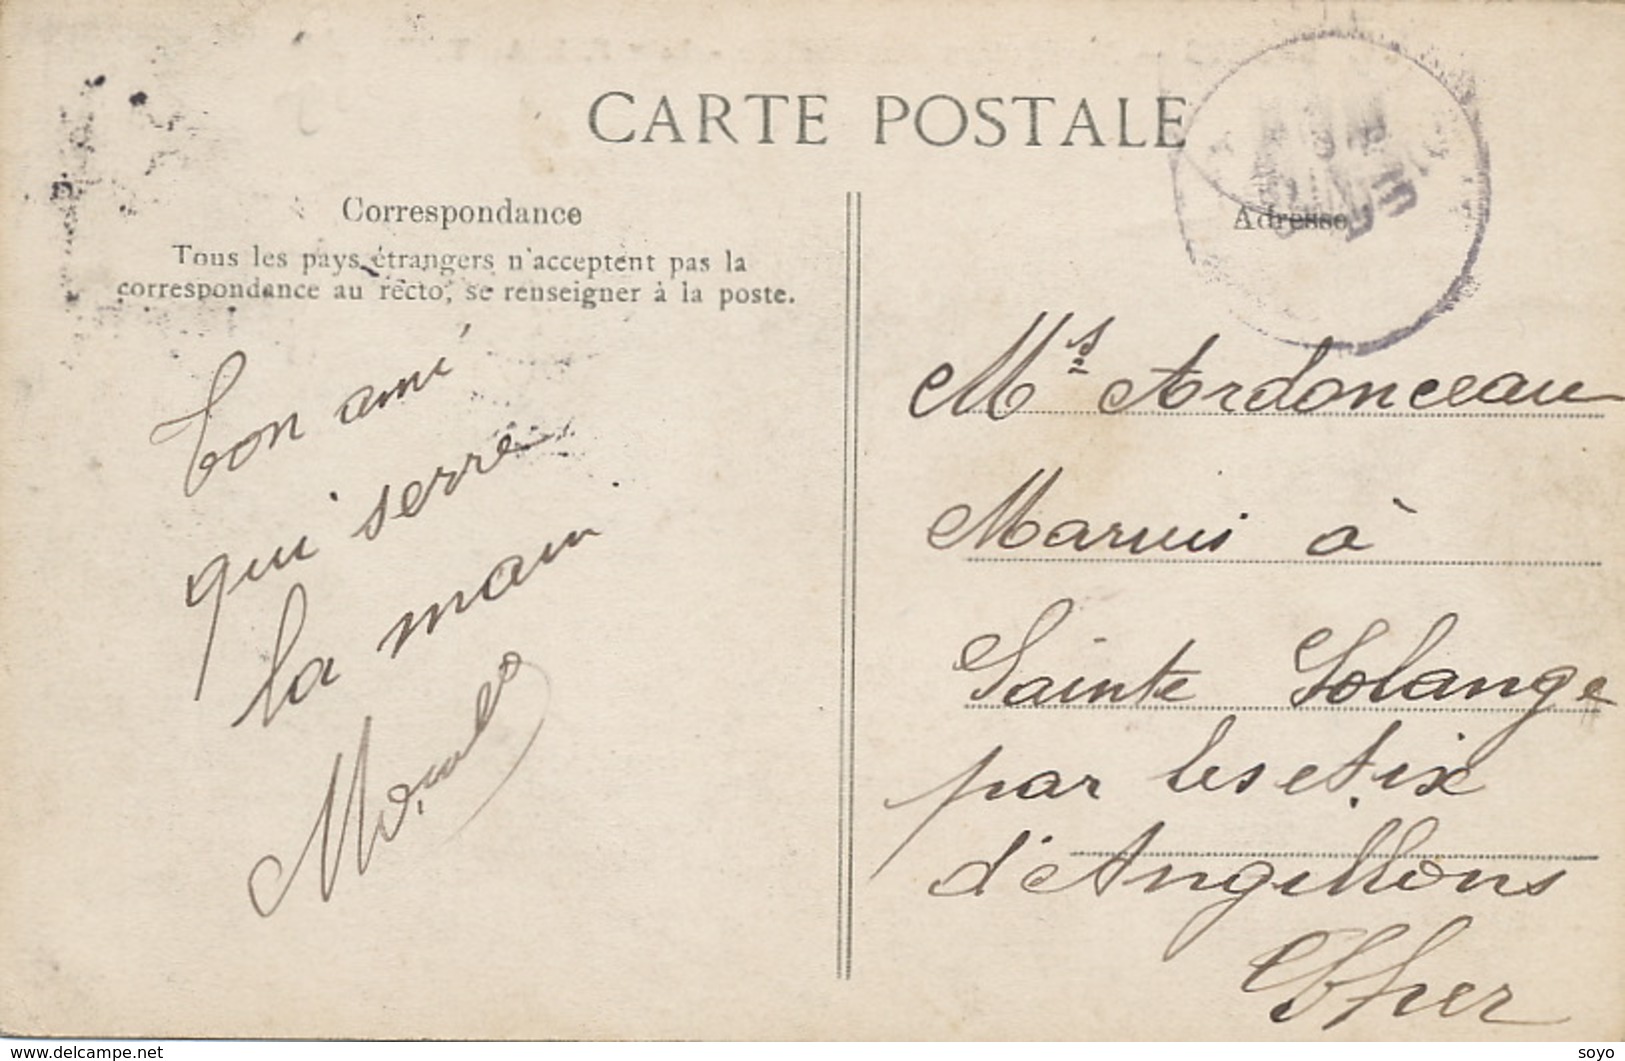 CARTE POSTALE
Correspondance
Tous les pays étrangers n'acceptent pas la
correspondance au recto, se renseigner à la poste.
ton ami
qui serre
la main
Adresse
Ms Ardonceau
à
Sainte Solange
par les Aix
d'Angillons
Cher
www.delcampe.net
soyo